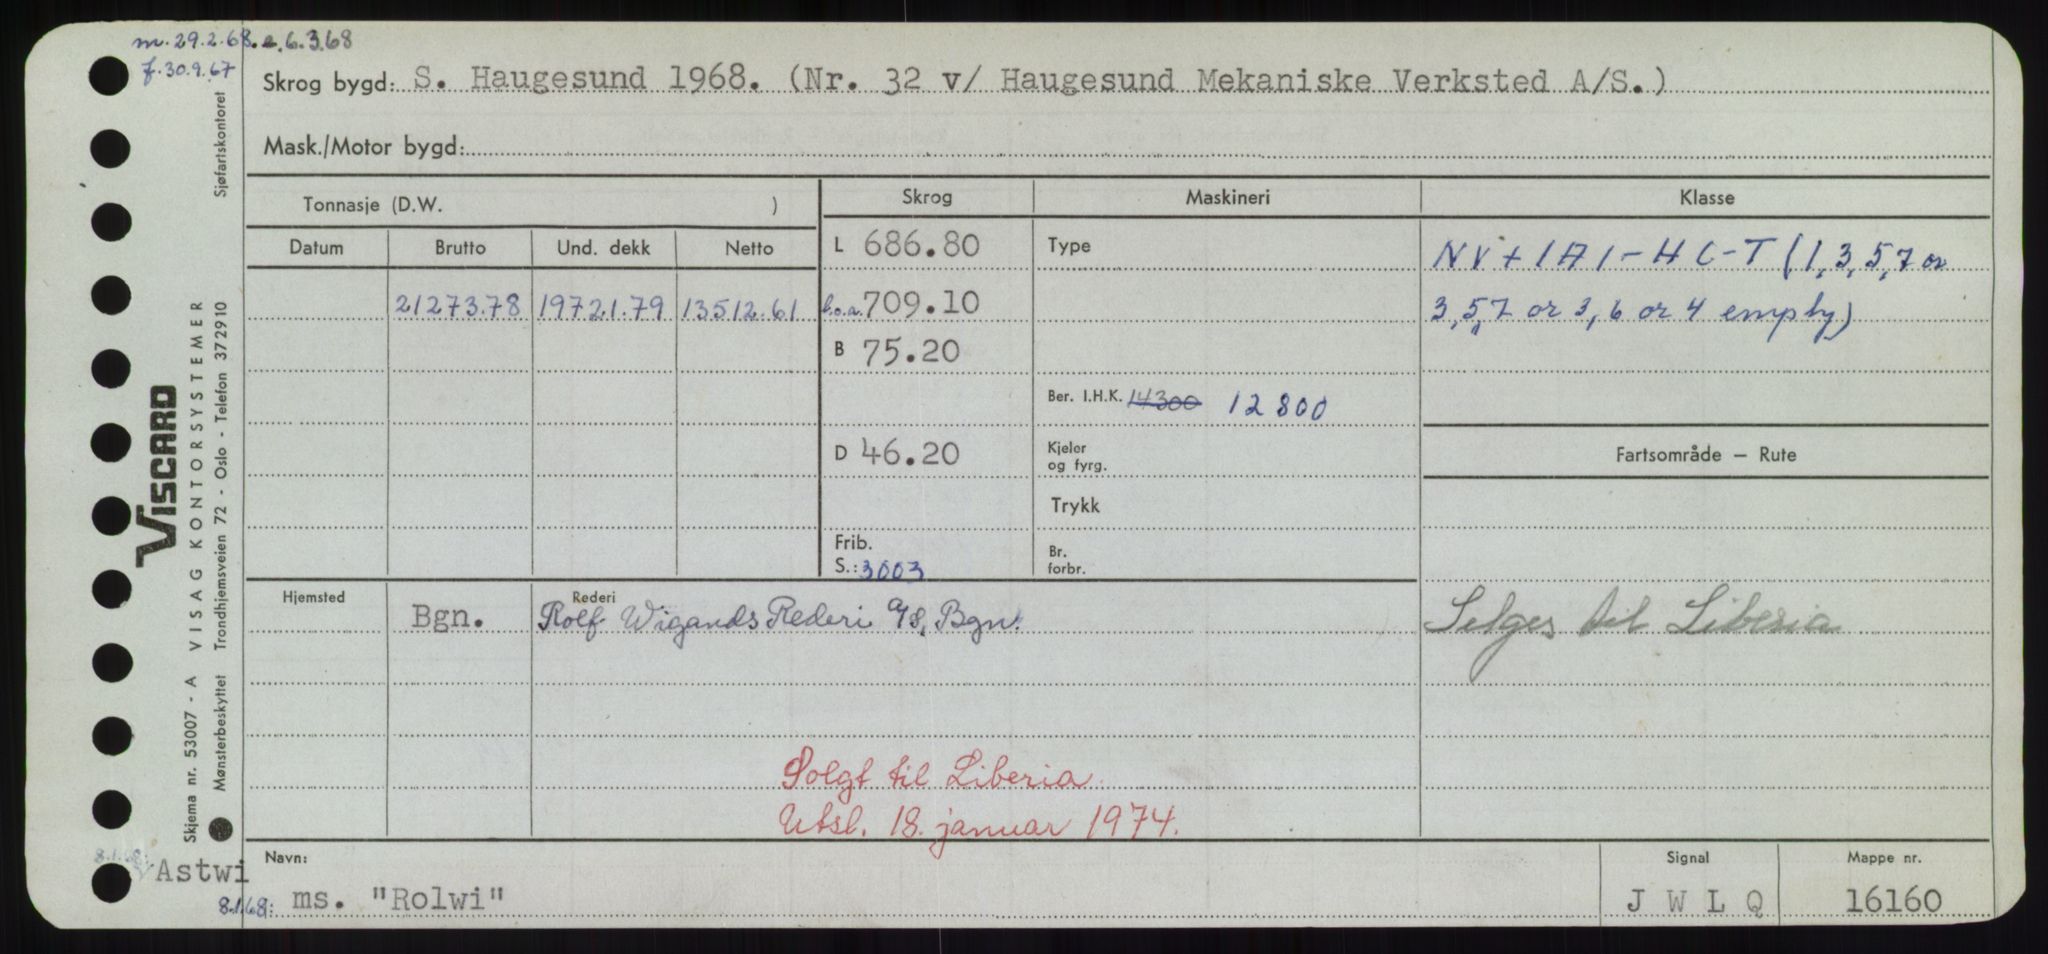 m. 29.2.68. e. 6.3.68
f. 30.9.67
Skrog bygd: S. Haugesund 1968. (Nr. 32 v/ Haugesund Mekaniske Verksted A/S.)
Mask./Motor bygd:
Tonnasje (D.W. )
Skrog
Maskineri
Klasse
Datum Brutto Und. dekk Netto
L 686.80
Type
NV + 1A1 - HC-T (1,3,5,7 or
21273.78 19721.79 13512.61
l.o.a. 709.10
3,5,7 or 3,6 or 4 empty)
B 75.20
Ber. I.H.K. 14300 12800
D 46.20
Kjeler
og fyrg.
Fartsområde – Rute
Trykk
Frib.
S.: 3003
Br.
forbr.
Hjemsted
Rederi
Bgn. Rolf Wigands Rederi A/S, Bgn.
Selges til Liberia
Solgt til Liberia.
Utsl. 18. januar 1974.
Navn:
Signal
Mappe nr.
8.1.68: Astwi
8.1.68: ms. "Rolwi"
J W L Q
16160
Viscard
VISAG KONTORSYSTEMER
Skjema nr. 53007 - A
Sjøfartskontoret
Mønsterbeskyttet Trondhjemsveien 72 - Oslo - Telefon 372910